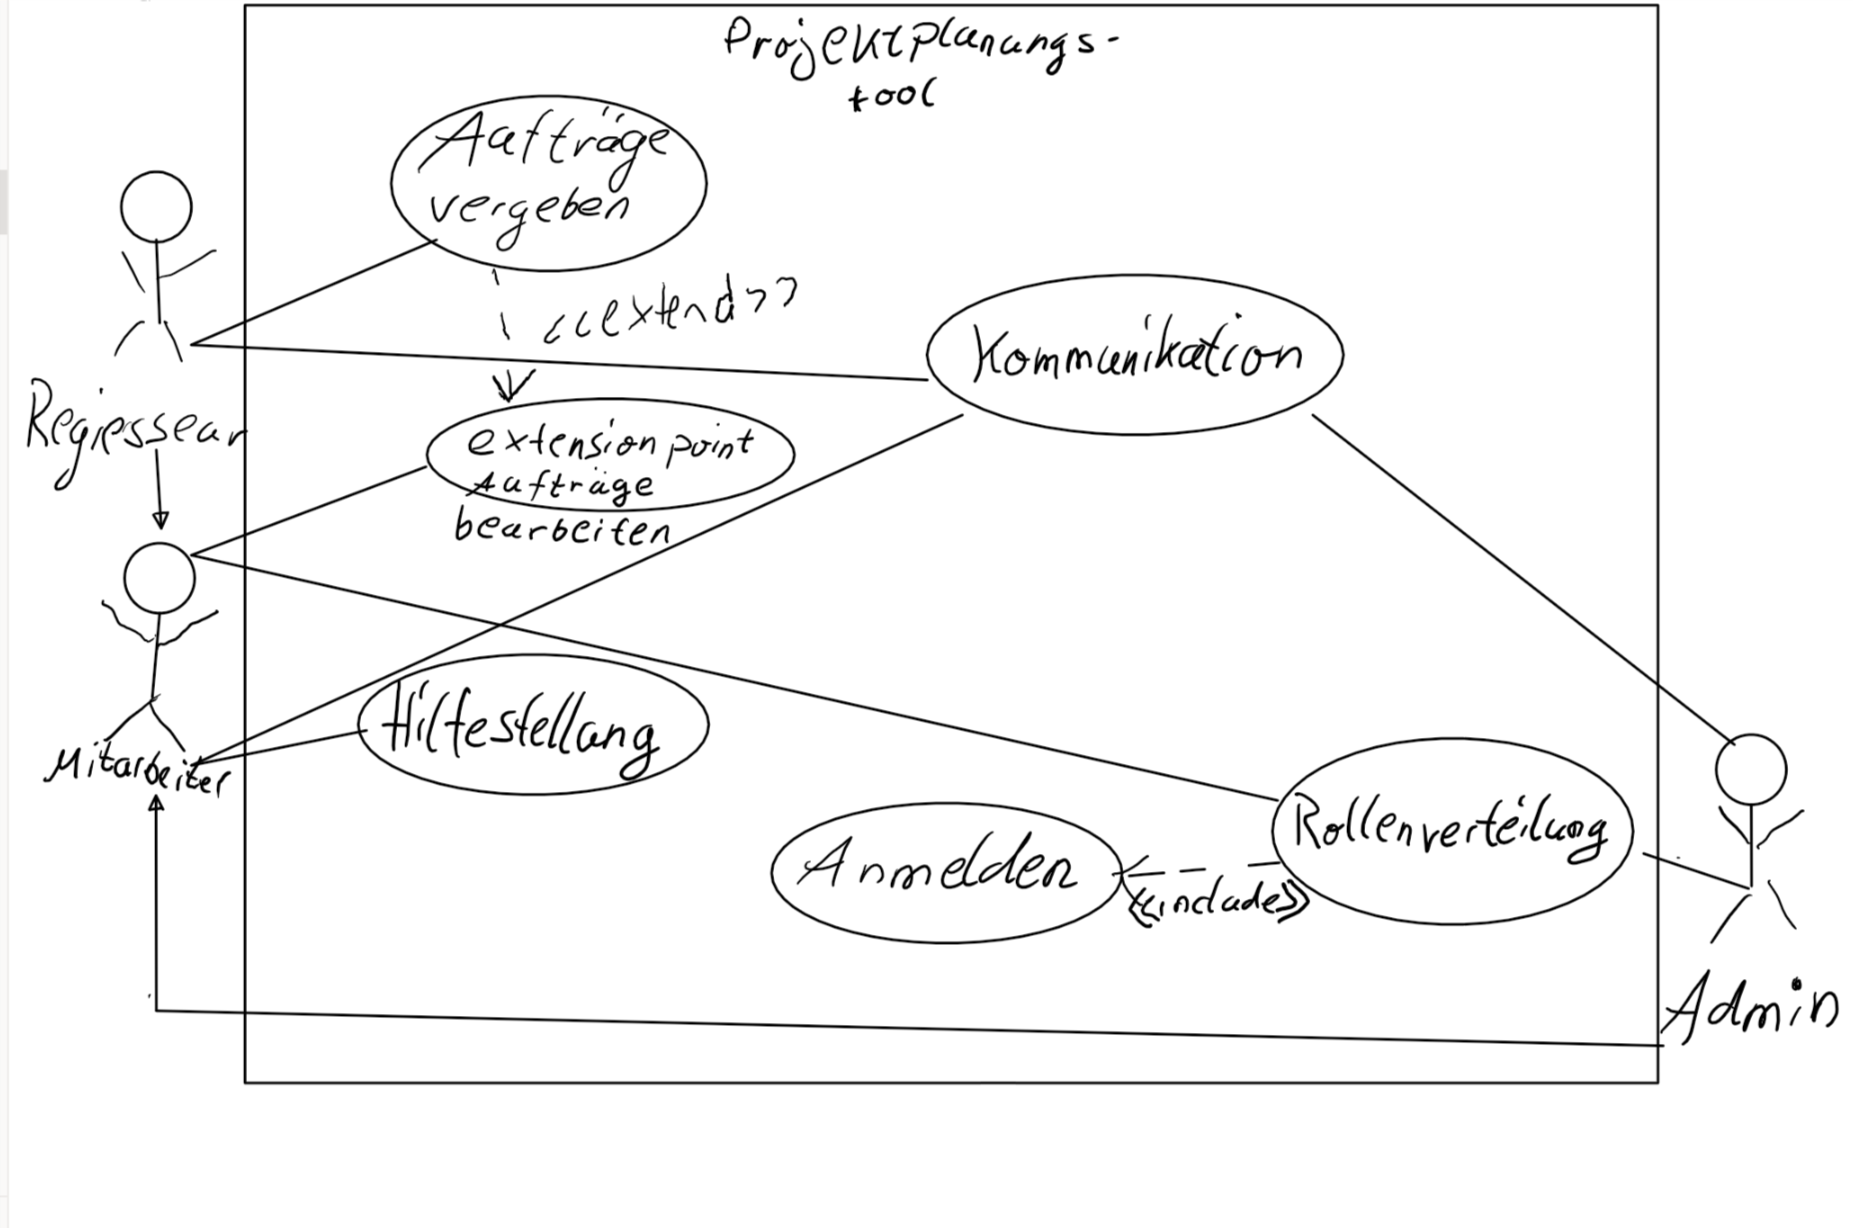 Projektplanungs-
tool
Aufträge
vergeben
<<extend>>
Kommunikation
Regiesseur
extension point
Aufträge
bearbeiten
Hilfestellung
Mitarbeiter
Rollenverteilung
Anmelden
<<include>>
Admin